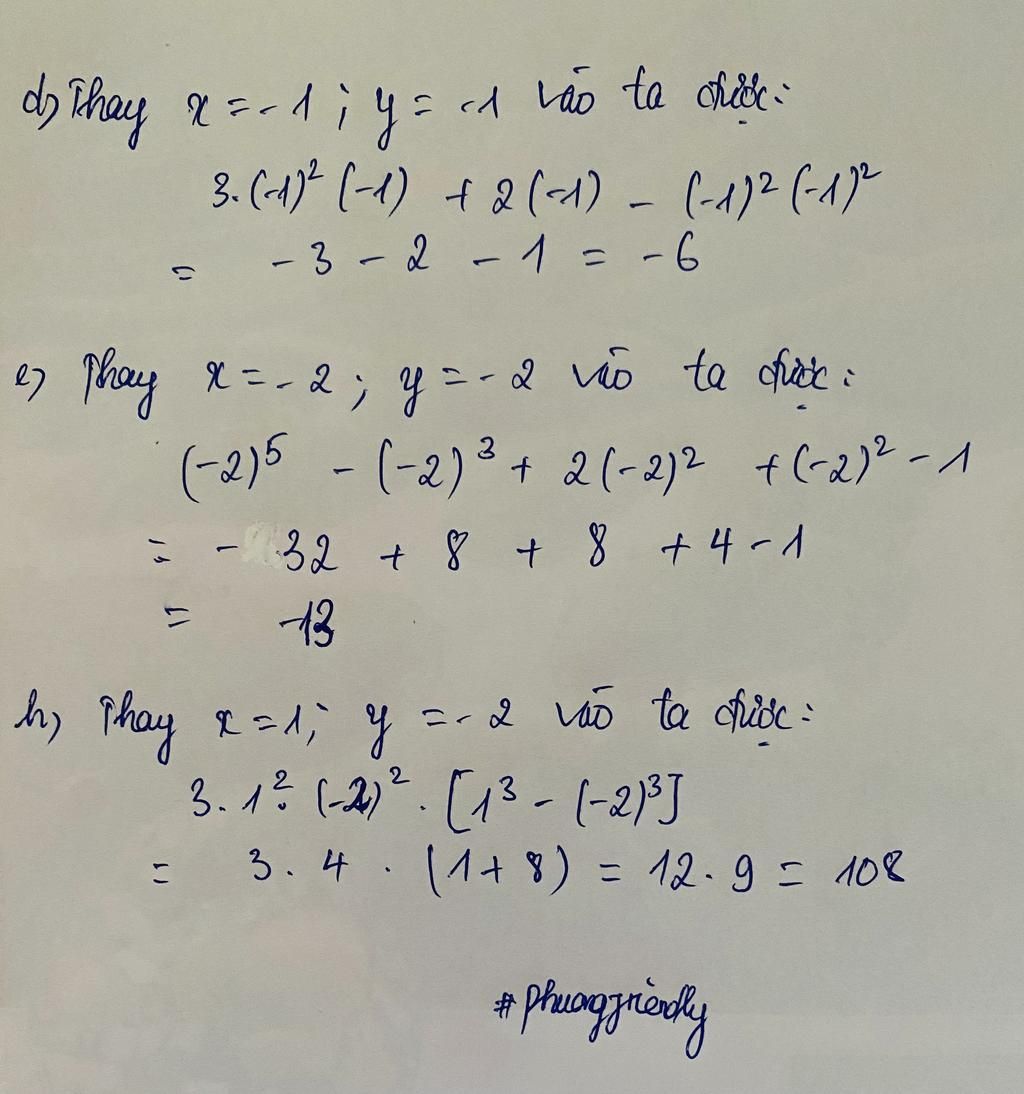 d) Thay x = -1 ; y = -1 vào ta được:
3.(-1)² (-1) + 2(-1) - (-1)² (-1)²
= -3 - 2 - 1 = -6
e) Thay x = -2 ; y = -2 vào ta được:
(-2)⁵ - (-2)³ + 2(-2)² + (-2)² - 1
= - 32 + 8 + 8 + 4 - 1
= -13
h) Thay x = 1 ; y = -2 vào ta được:
3. 1². (-2)² . [1³ - (-2)³]
= 3 . 4 . (1 + 8) = 12 . 9 = 108
#phuongfriendly